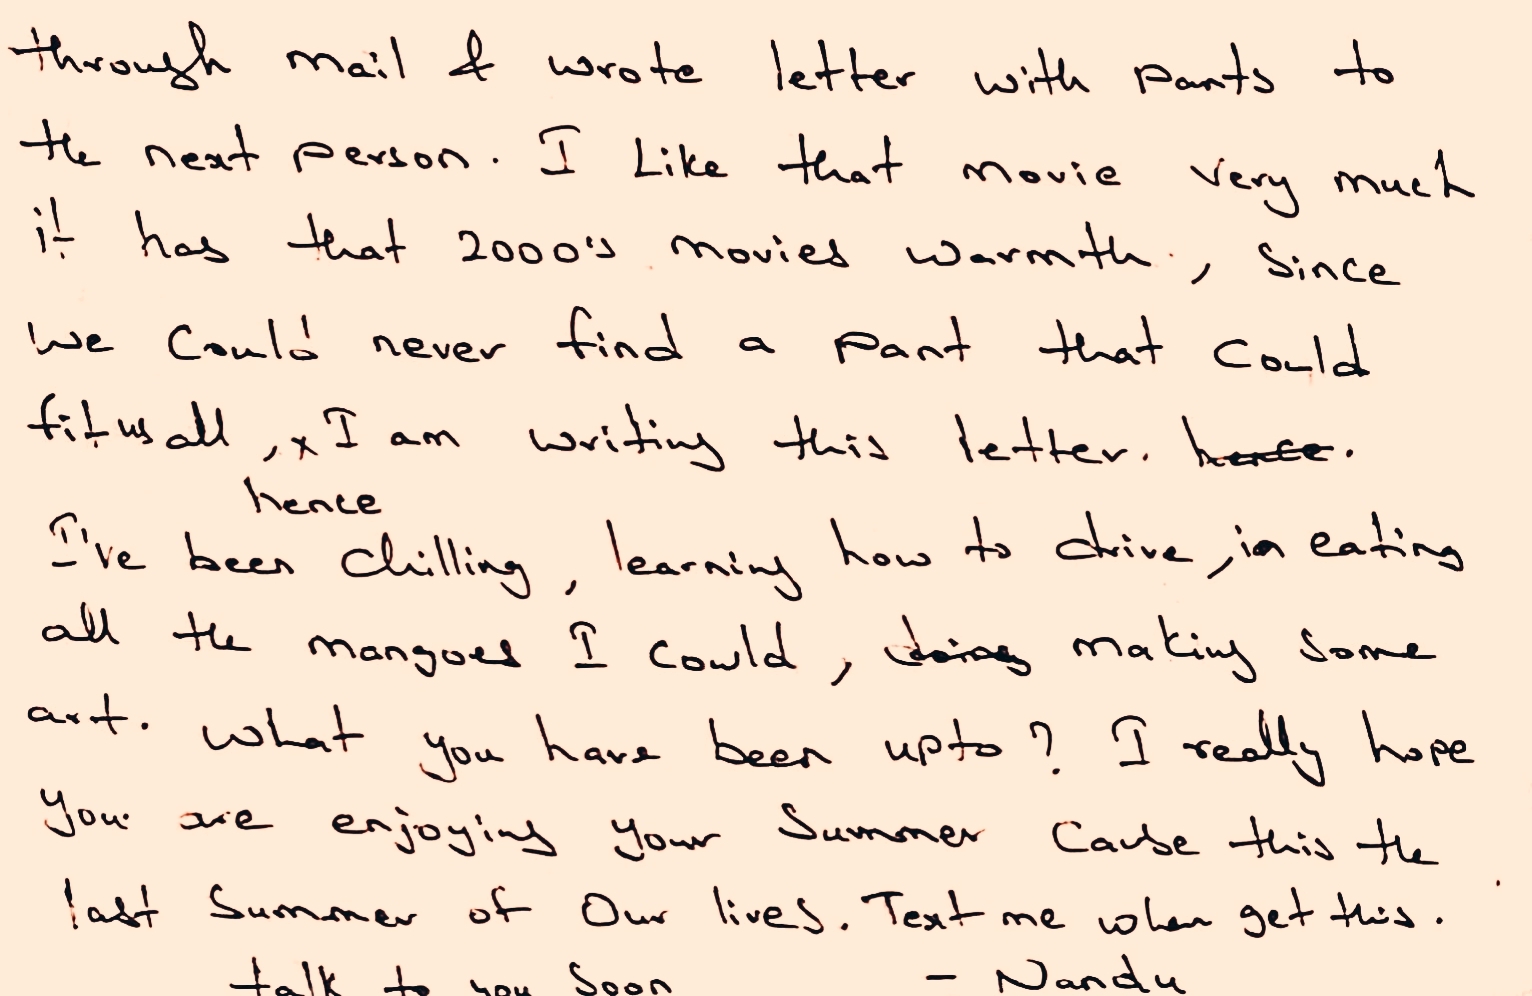 through mail & wrote letter with pants to
the next person. I Like that movie very much
it has that 2000's movies warmth, Since
we could never find a pant that could
fit us all, x I am writing this letter. hence.
hence
I've been chilling, learning how to drive, in eating
all the mangoes I could, doing making some
art. What you have been upto? I really hope
you are enjoying your Summer Cause this the
last Summer of Our lives. Text me when get this.
talk to you Soon - Nandu